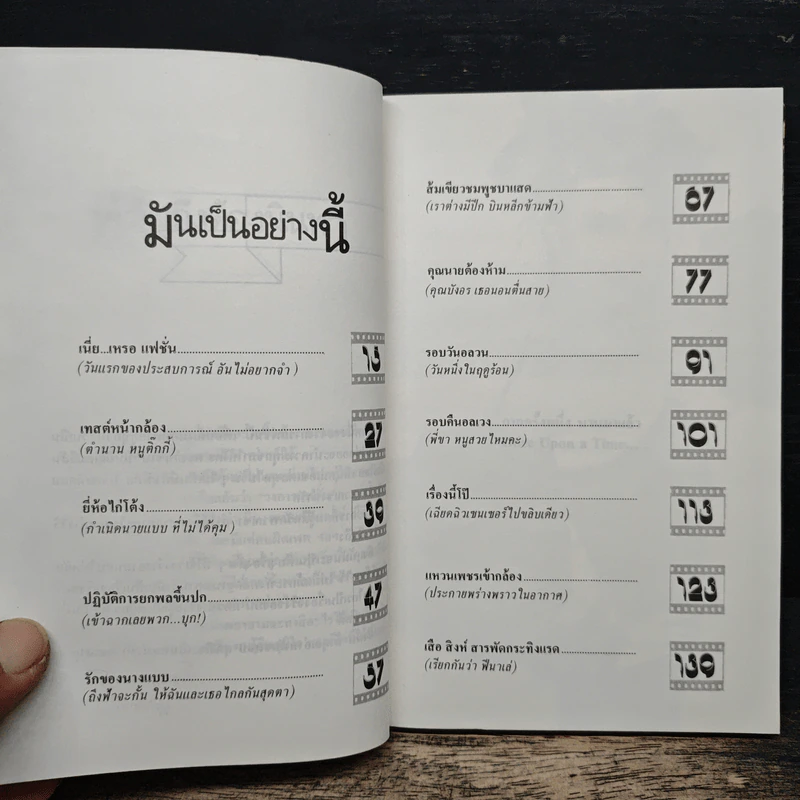 มันเป็นอย่างนี้
เนี่ย...เหรอ แฟชั่น.......... 15
(วันแรกของประสบการณ์ อันไม่อยากจำ)
เทสต์หน้ากล้อง.......... 27
(ตำนาน หนูติ๊กกี้)
ยี่ห้อไก่โต้ง.......... 39
(กำเนิดนายแบบ ที่ไม่ได้คุม)
ปฏิบัติการยกพลขึ้นปก.......... 47
(เข้าฉากเลยพวก...บุก!)
รักของนางแบบ.......... 57
(ถึงฟ้าจะกั้น ให้ฉันและเธอไกลกันสุดตา)
ส้มเขียวชมพูชบาแสด.......... 67
(เราต่างมีปีก บินหลีกข้ามฟ้า)
คุณนายต้องห้าม.......... 77
(คุณบังอร เธอนอนตื่นสาย)
รอบวันอลวน.......... 91
(วันหนึ่งในฤดูร้อน)
รอบคืนอลเวง.......... 101
(พี่ขา หนูสวยไหมคะ)
เรื่องนี้โป๊.......... 113
(เฉียดฉิวเซนเซอร์ไปขลิบเดียว)
แหวนเพชรเข้ากล้อง.......... 123
(ประกายพร่างพราวในอากาศ)
เสือ สิงห์ สารพัดกระทิงแรด.......... 139
(เรียกกันว่า ฟินาเล่)